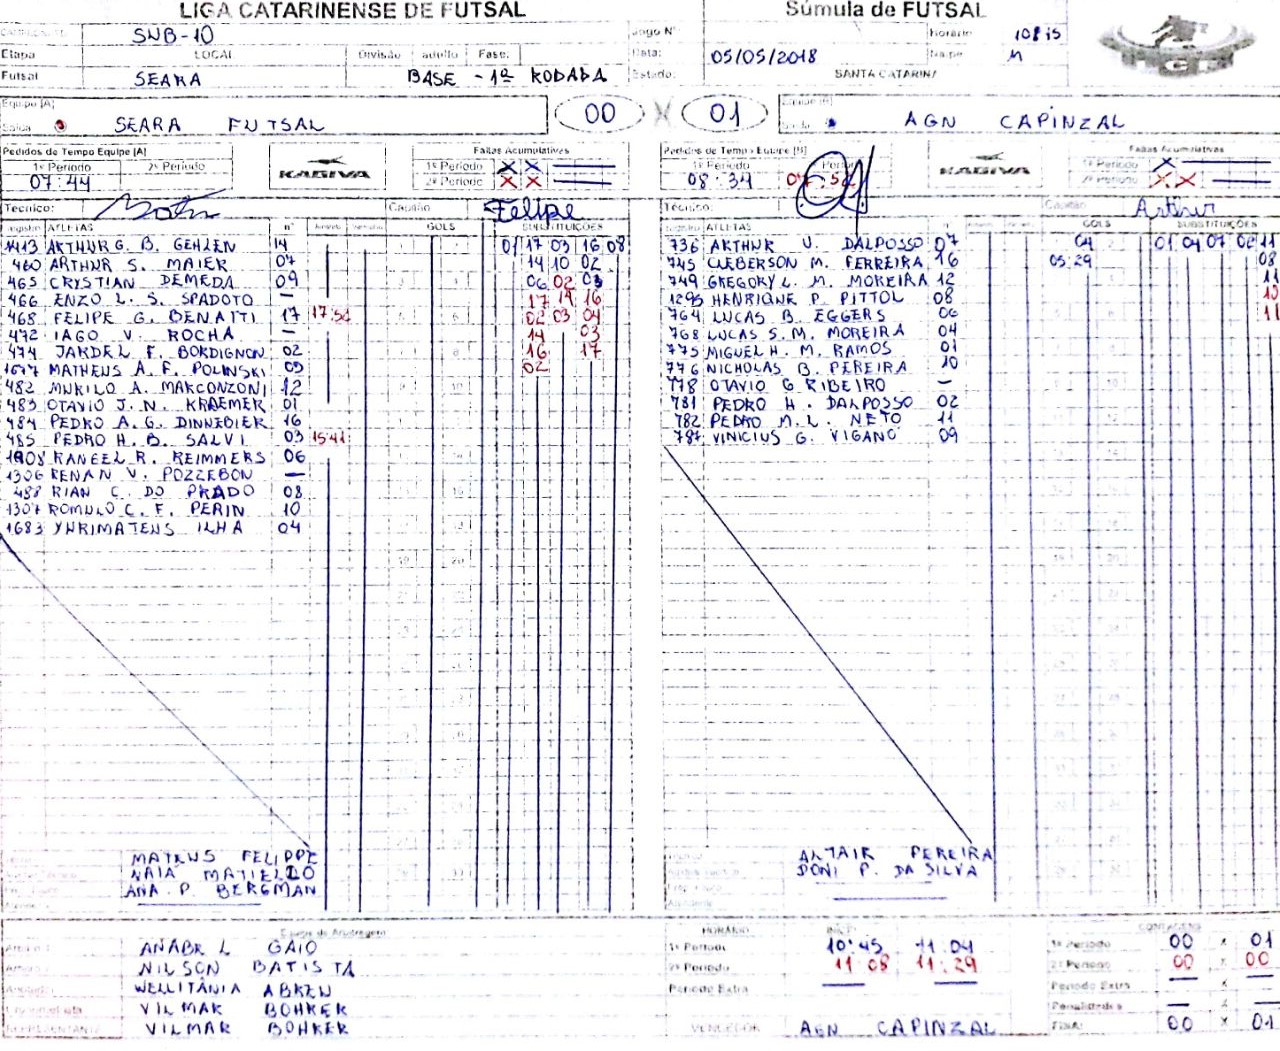 LIGA CATARINENSE DE FUTSAL
Súmula de FUTSAL
SUB-10
Jogo Nº
Horário 10:15
Etapa LOCAL Divisão adulto Fase:
Data: 05/05/2018
Naipe M
Futsal SEARA BASE - 1ª RODADA
Estado: SANTA CATARINA
Equipe [A]
SEARA FUTSAL
00 X 01
AGN CAPINZAL
Pedidos de Tempo Equipe [A]
1º Período 2º Período
07:44
KAGIVA
Faltas Acumulativas
1º Período X X
2º Período X X
Pedidos de Tempo Equipe [B]
1º Período Período
08:34
KAGIVA
Faltas Acumulativas
1º Período X
2º Período X X
Técnico: Capitão Felipe
Técnico: Capitão Arthur
ATLETAS nº GOLS SUBSTITUIÇÕES
1413 ARTHUR G. B. GEHLEN 14 01 17 03 16 08
460 ARTHUR S. MAIER 07 14 10 02
465 CRYSTIAN DEMEDA 09 06 02 03
466 ENZO L. S. SPADOTO — 17 14 16
468 FELIPE G. BENATTI 17 17:52 02 03 04
472 IAGO V. ROCHA — 14 03
474 JARDEL F. BORDIGNON 02 16 17
MATHEUS A. F. POLINSKI 02
482 MURILO A. MARCONZONI 12
483 OTAVIO J. N. KRAEMER 01
484 PEDRO A. G. DINNEBIER 16
485 PEDRO H. B. SALVI 03 15:41
RANEEL R. REIMMERS 06
1306 RENAN V. POZZEBON —
488 RIAN C. DO PRADO 08
1307 ROMULO C. F. PERIN 10
1683 YURIMATEUS ILHA 04
MATEUS FELIPPE
NAIÁ MATIELLO
ANA P. BERGMAN
ATLETAS GOLS SUBSTITUIÇÕES
736 ARTHUR V. DALPOSSO 07 04 01 04 07 02 11
745 CLEBERSON M. FERREIRA 16 05:29 08
749 GREGORY L. M. MOREIRA 12 11
1295 HENRIQUE P. PITTOL 08
764 LUCAS B. EGGERS 06 11
768 LUCAS S. M. MOREIRA 04
775 MIGUEL H. M. RAMOS 01
776 NICHOLAS B. PEREIRA 10
778 OTAVIO G RIBEIRO —
781 PEDRO H. DALPOSSO 02
782 PEDRO M. L. NETO 11
787 VINICIUS G. VIGANO 09
ALTAIR PEREIRA
DONI P. DA SILVA
Equipe de Arbitragem
GAIO
NILSON BATISTA
WELLITÂNIA ABREU
VILMAR BOHRER
REPRESENTANTE VILMAR BOHRER
HORÁRIO
1º Período 10:45 11:04
2º Período 11:08 11:29
Período Extra
VENCEDOR AGN CAPINZAL
CONTAGENS
1º Período 00 x 01
2º Período 00 x 00
Período Extra — x —
Penalidades — x —
FINAL 00 x 01